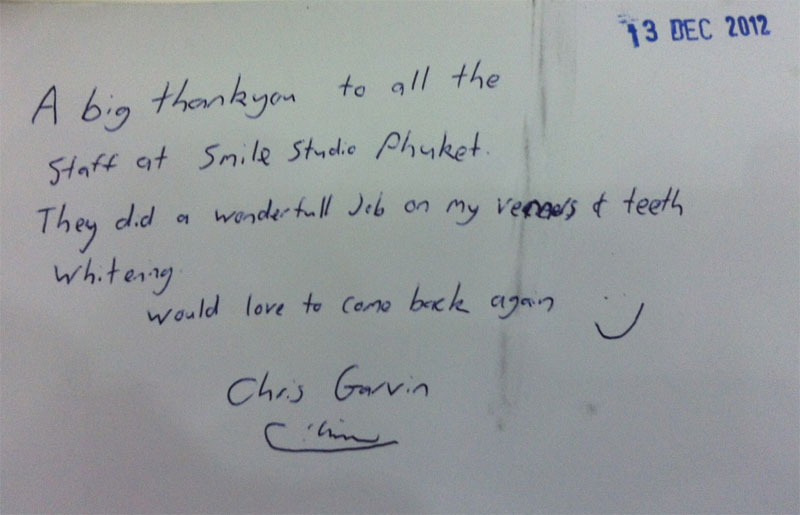 13 DEC 2012
A big thankyou to all the
Staff at Smile Studio Phuket.
They did a wonderfull Job on my & teeth
whitening.
would love to come back again
Chris Garvin